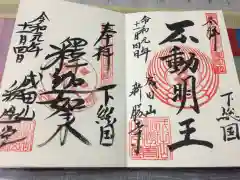 奉拝
下総国
不動明王
令和元年
十一月四日
成田山
新勝寺
奉拝
下総国
釋迦如来
令和元年
十一月四日
成田山